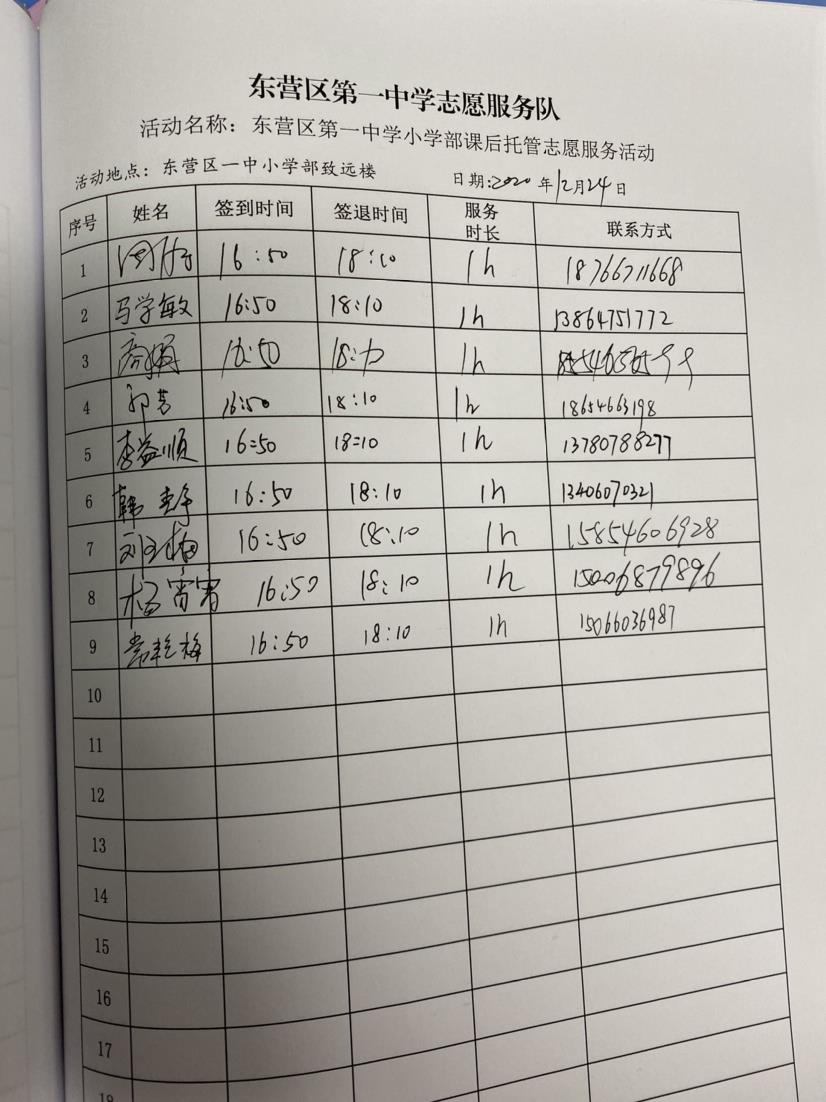 东营区第一中学志愿服务队
活动名称：东营区第一中学小学部课后托管志愿服务活动
活动地点：东营区一中小学部致远楼 日期:2020年12月24日
序号 姓名 签到时间 签退时间 服务时长 联系方式
1 16:50 18:10 1h 18766711668
2 马学敏 16:50 18:10 1h 13864751772
3 16:50 18:10 1h
4 郭芳 16:50 18:10 1h 18654663198
5 李益顺 16:50 18:10 1h 13780788277
6 韩 16:50 18:10 1h 13406070321
7 刘玉梅 16:50 18:10 1h 15854606928
8 杨宵宵 16:50 18:10 1h 15006879896
9 常艳梅 16:50 18:10 1h 15066036987
10
11
12
13
14
15
16
17
18